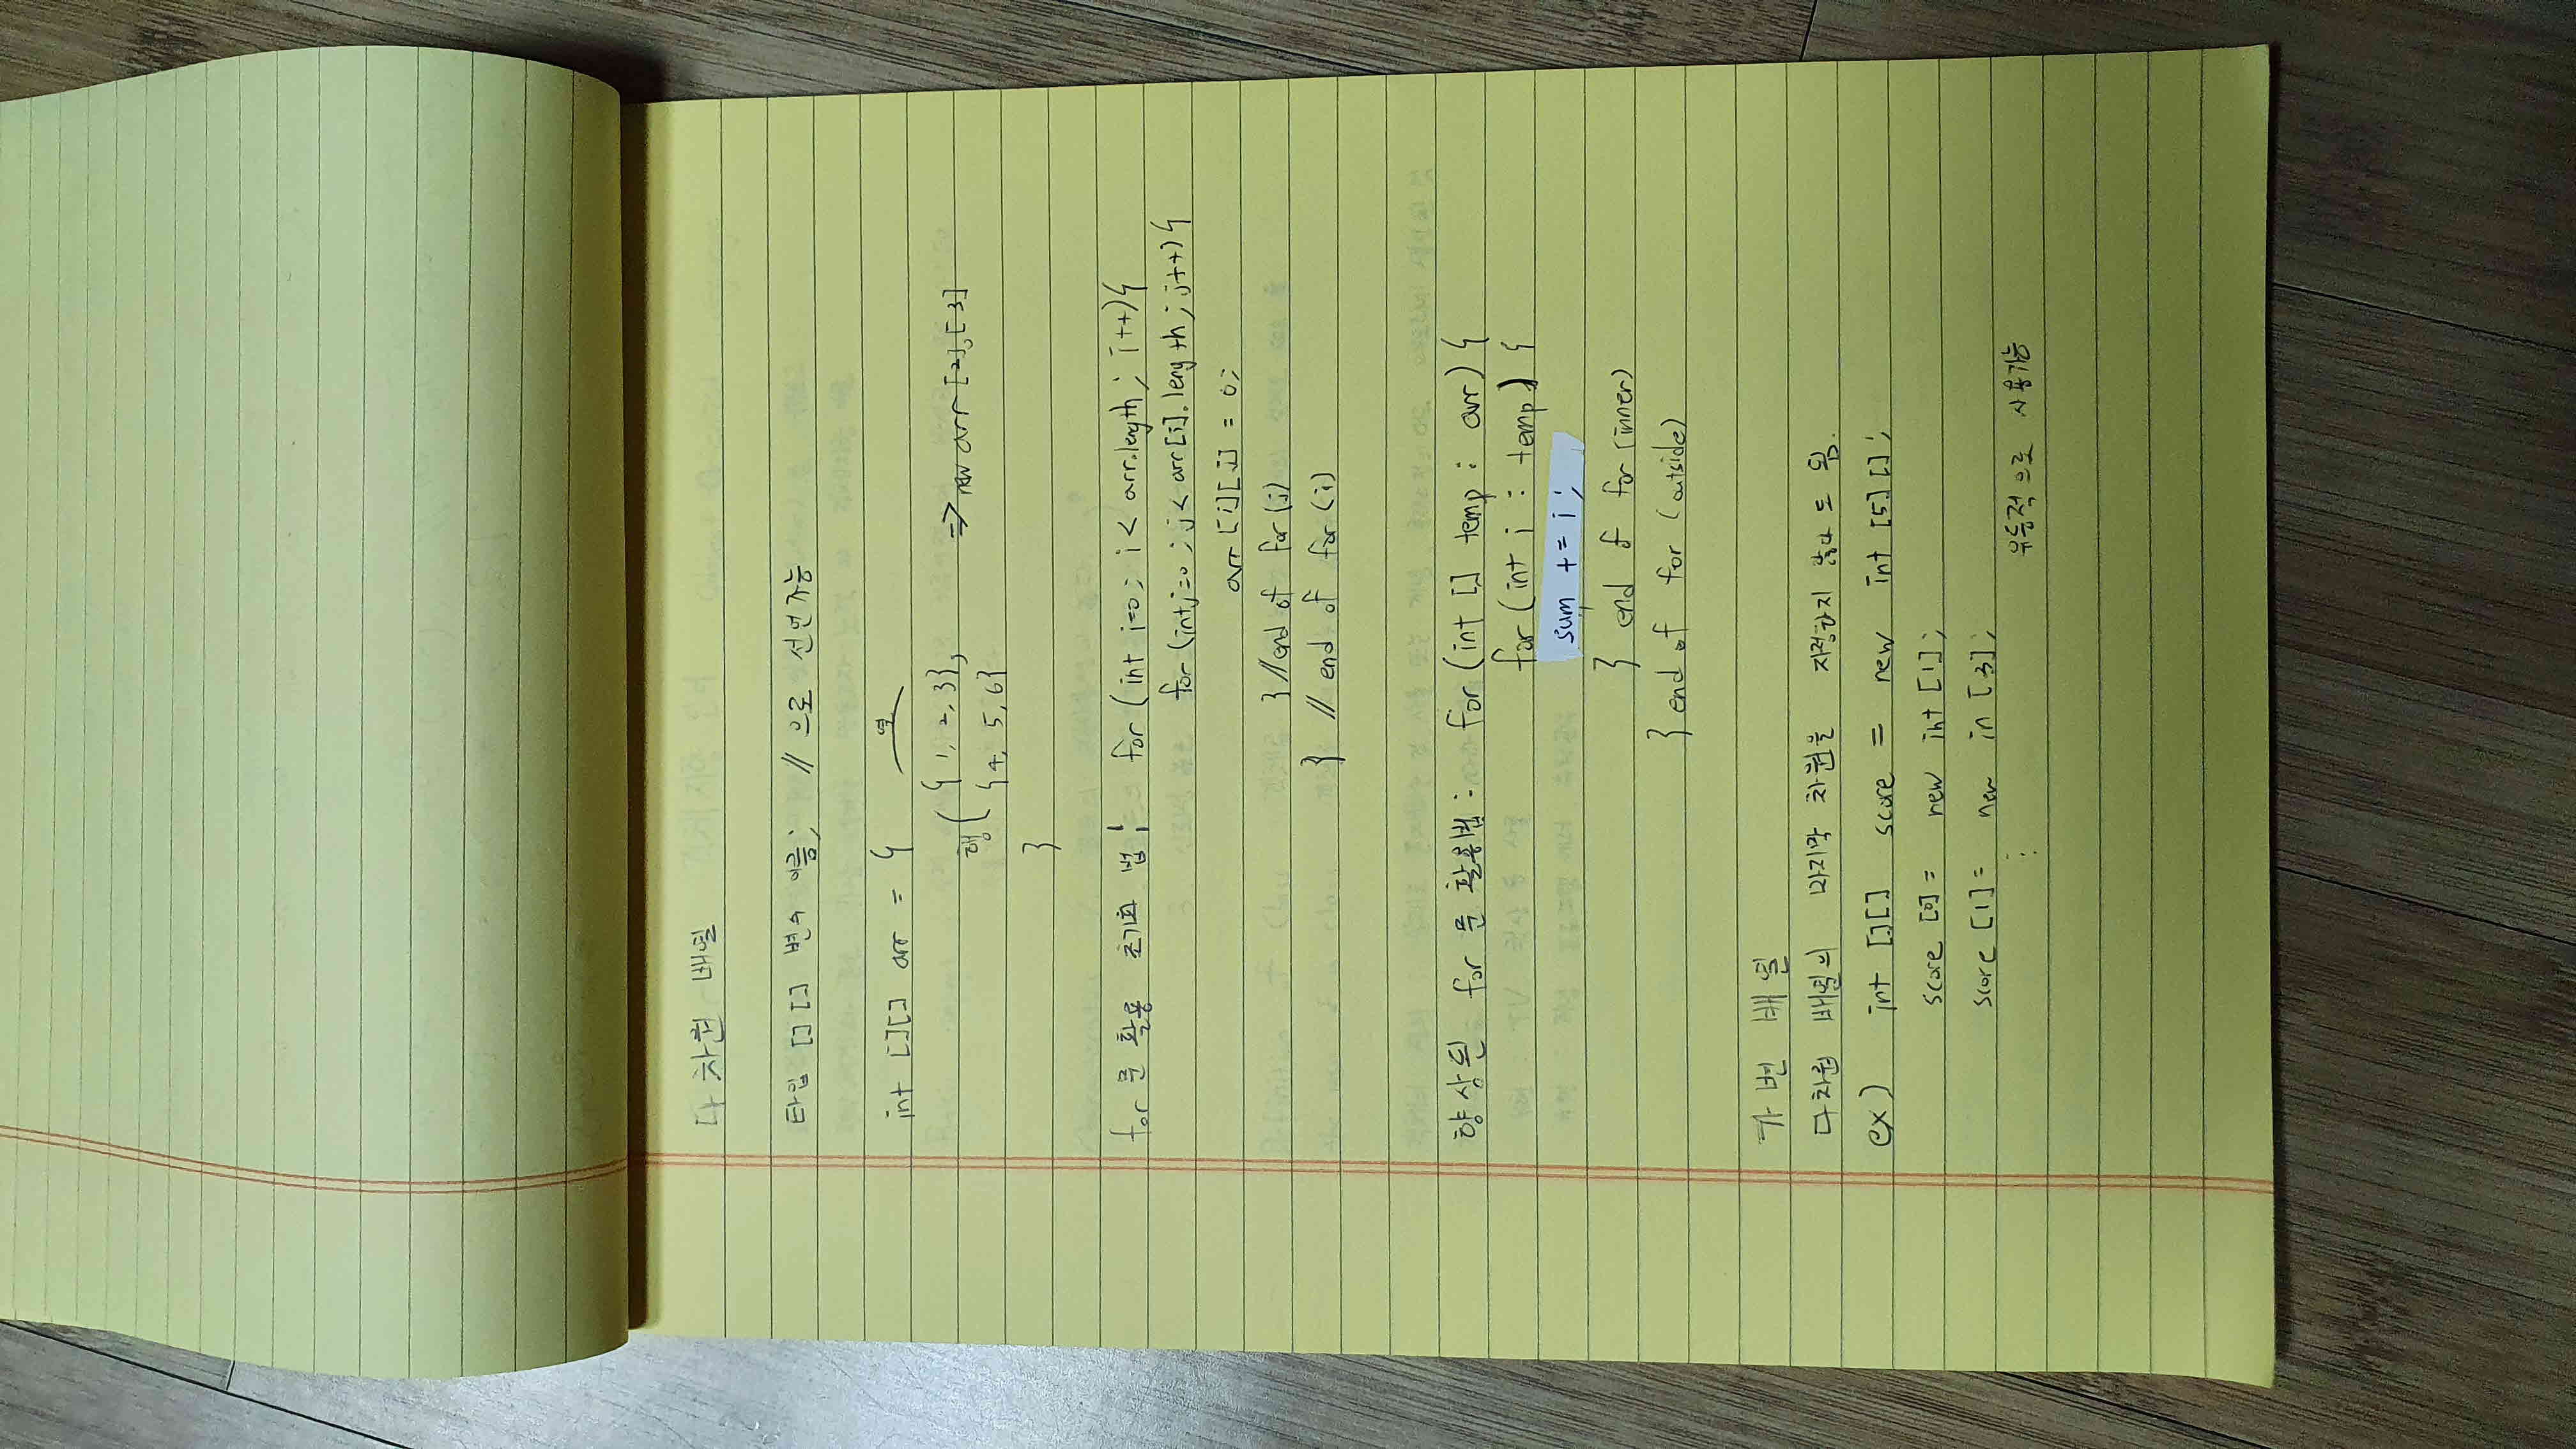 다차원 배열
타입 [][] 변수 이름; // 으로 선언가능
int [][] arr = {
열
행 ( { 1, 2, 3}, => new arr [2],[3]
{4, 5, 6}
}
for 문 활용 초기화 법: for (int i=0; i < arr.length; i++){
for (int j=0; j < arr[i].length; j++){
arr [i][j] = 0;
} //end of for (j)
} // end of for (i)
향상된 for 문 활용법: for (int [] temp : arr) {
for (int i : temp) {
sum += i;
} end of for (inner)
} end of for (outside)
가변 배열
다차원 배열의 마지막 차원을 지정하지 않아도 됨.
ex) int [][] score = new int [5][];
score [0] = new int [1];
score [1] = new in [3];
⋮ 유동적으로 사용가능